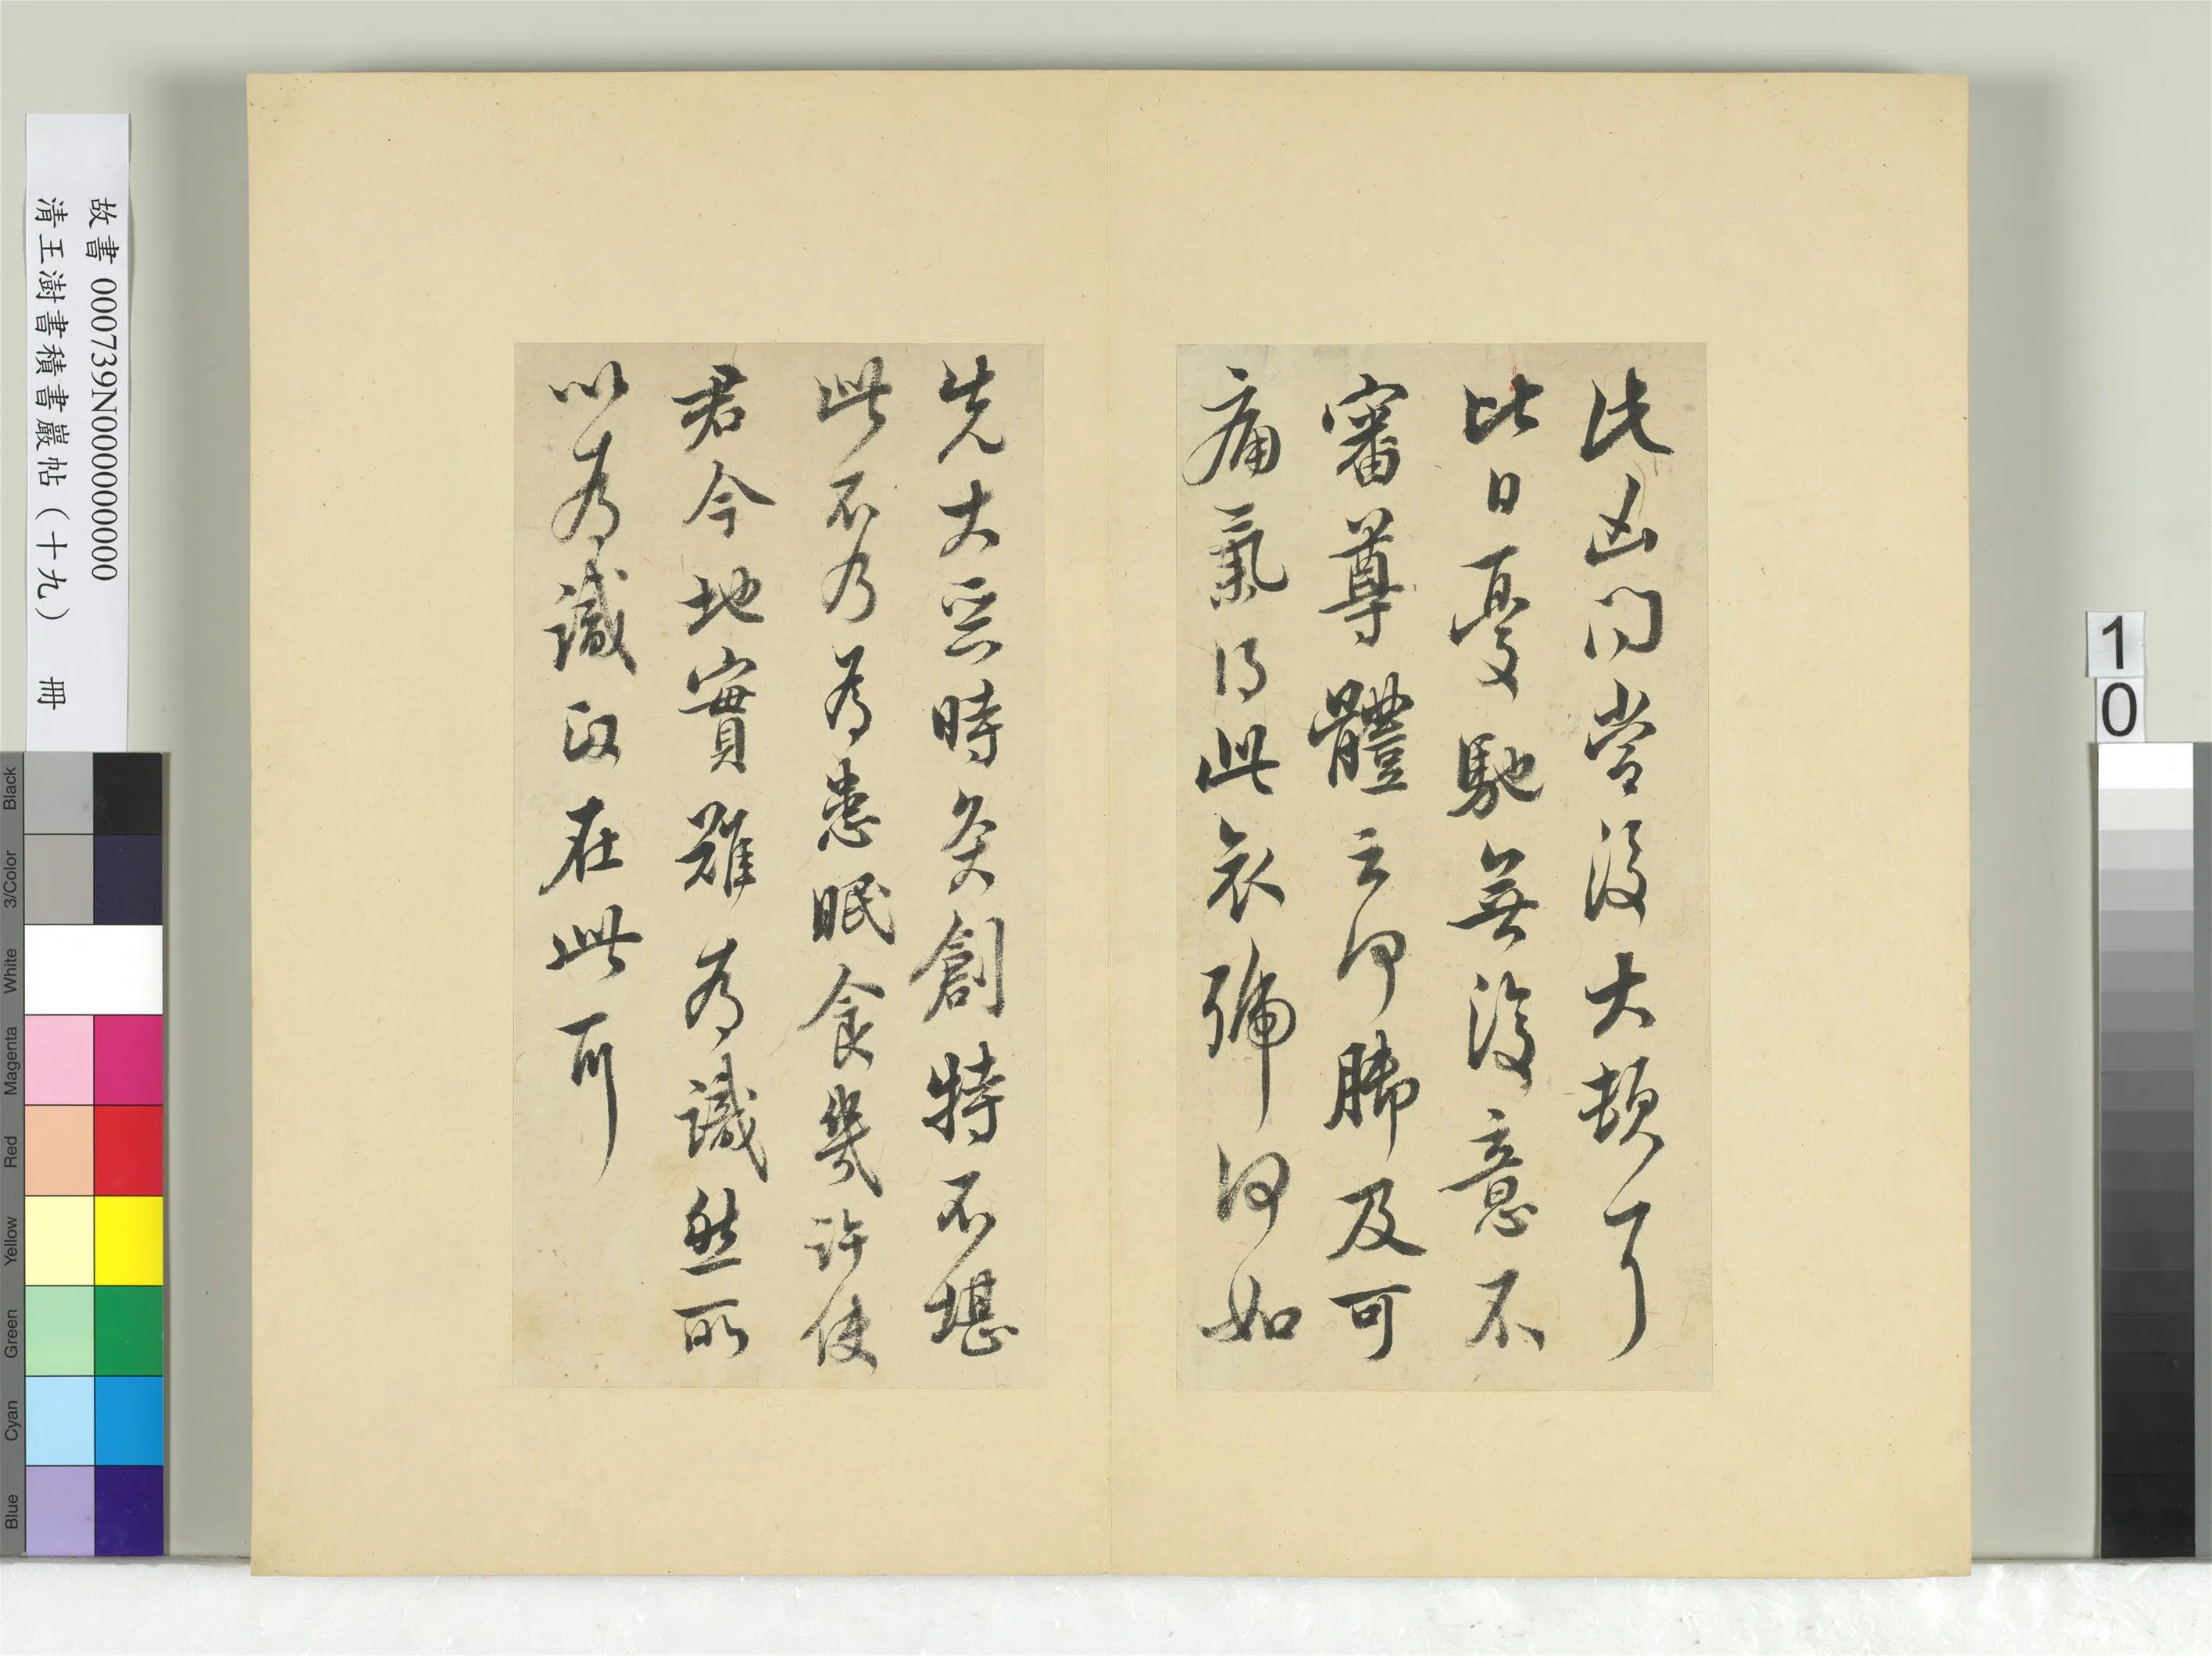 比凶問當復大頓耳
比日憂馳無復意不
審尊體云何肺及可
痛氣得此衣號何如
先大惡時灸創特不堪
此不乃為患眠食幾許使
君今地實難為識然所
以為識正在此耳
故書 000739N000000000
清王澍書積書巖帖（十九） 冊
10
Black
3/Color
White
Magenta
Red
Yellow
Green
Cyan
Blue